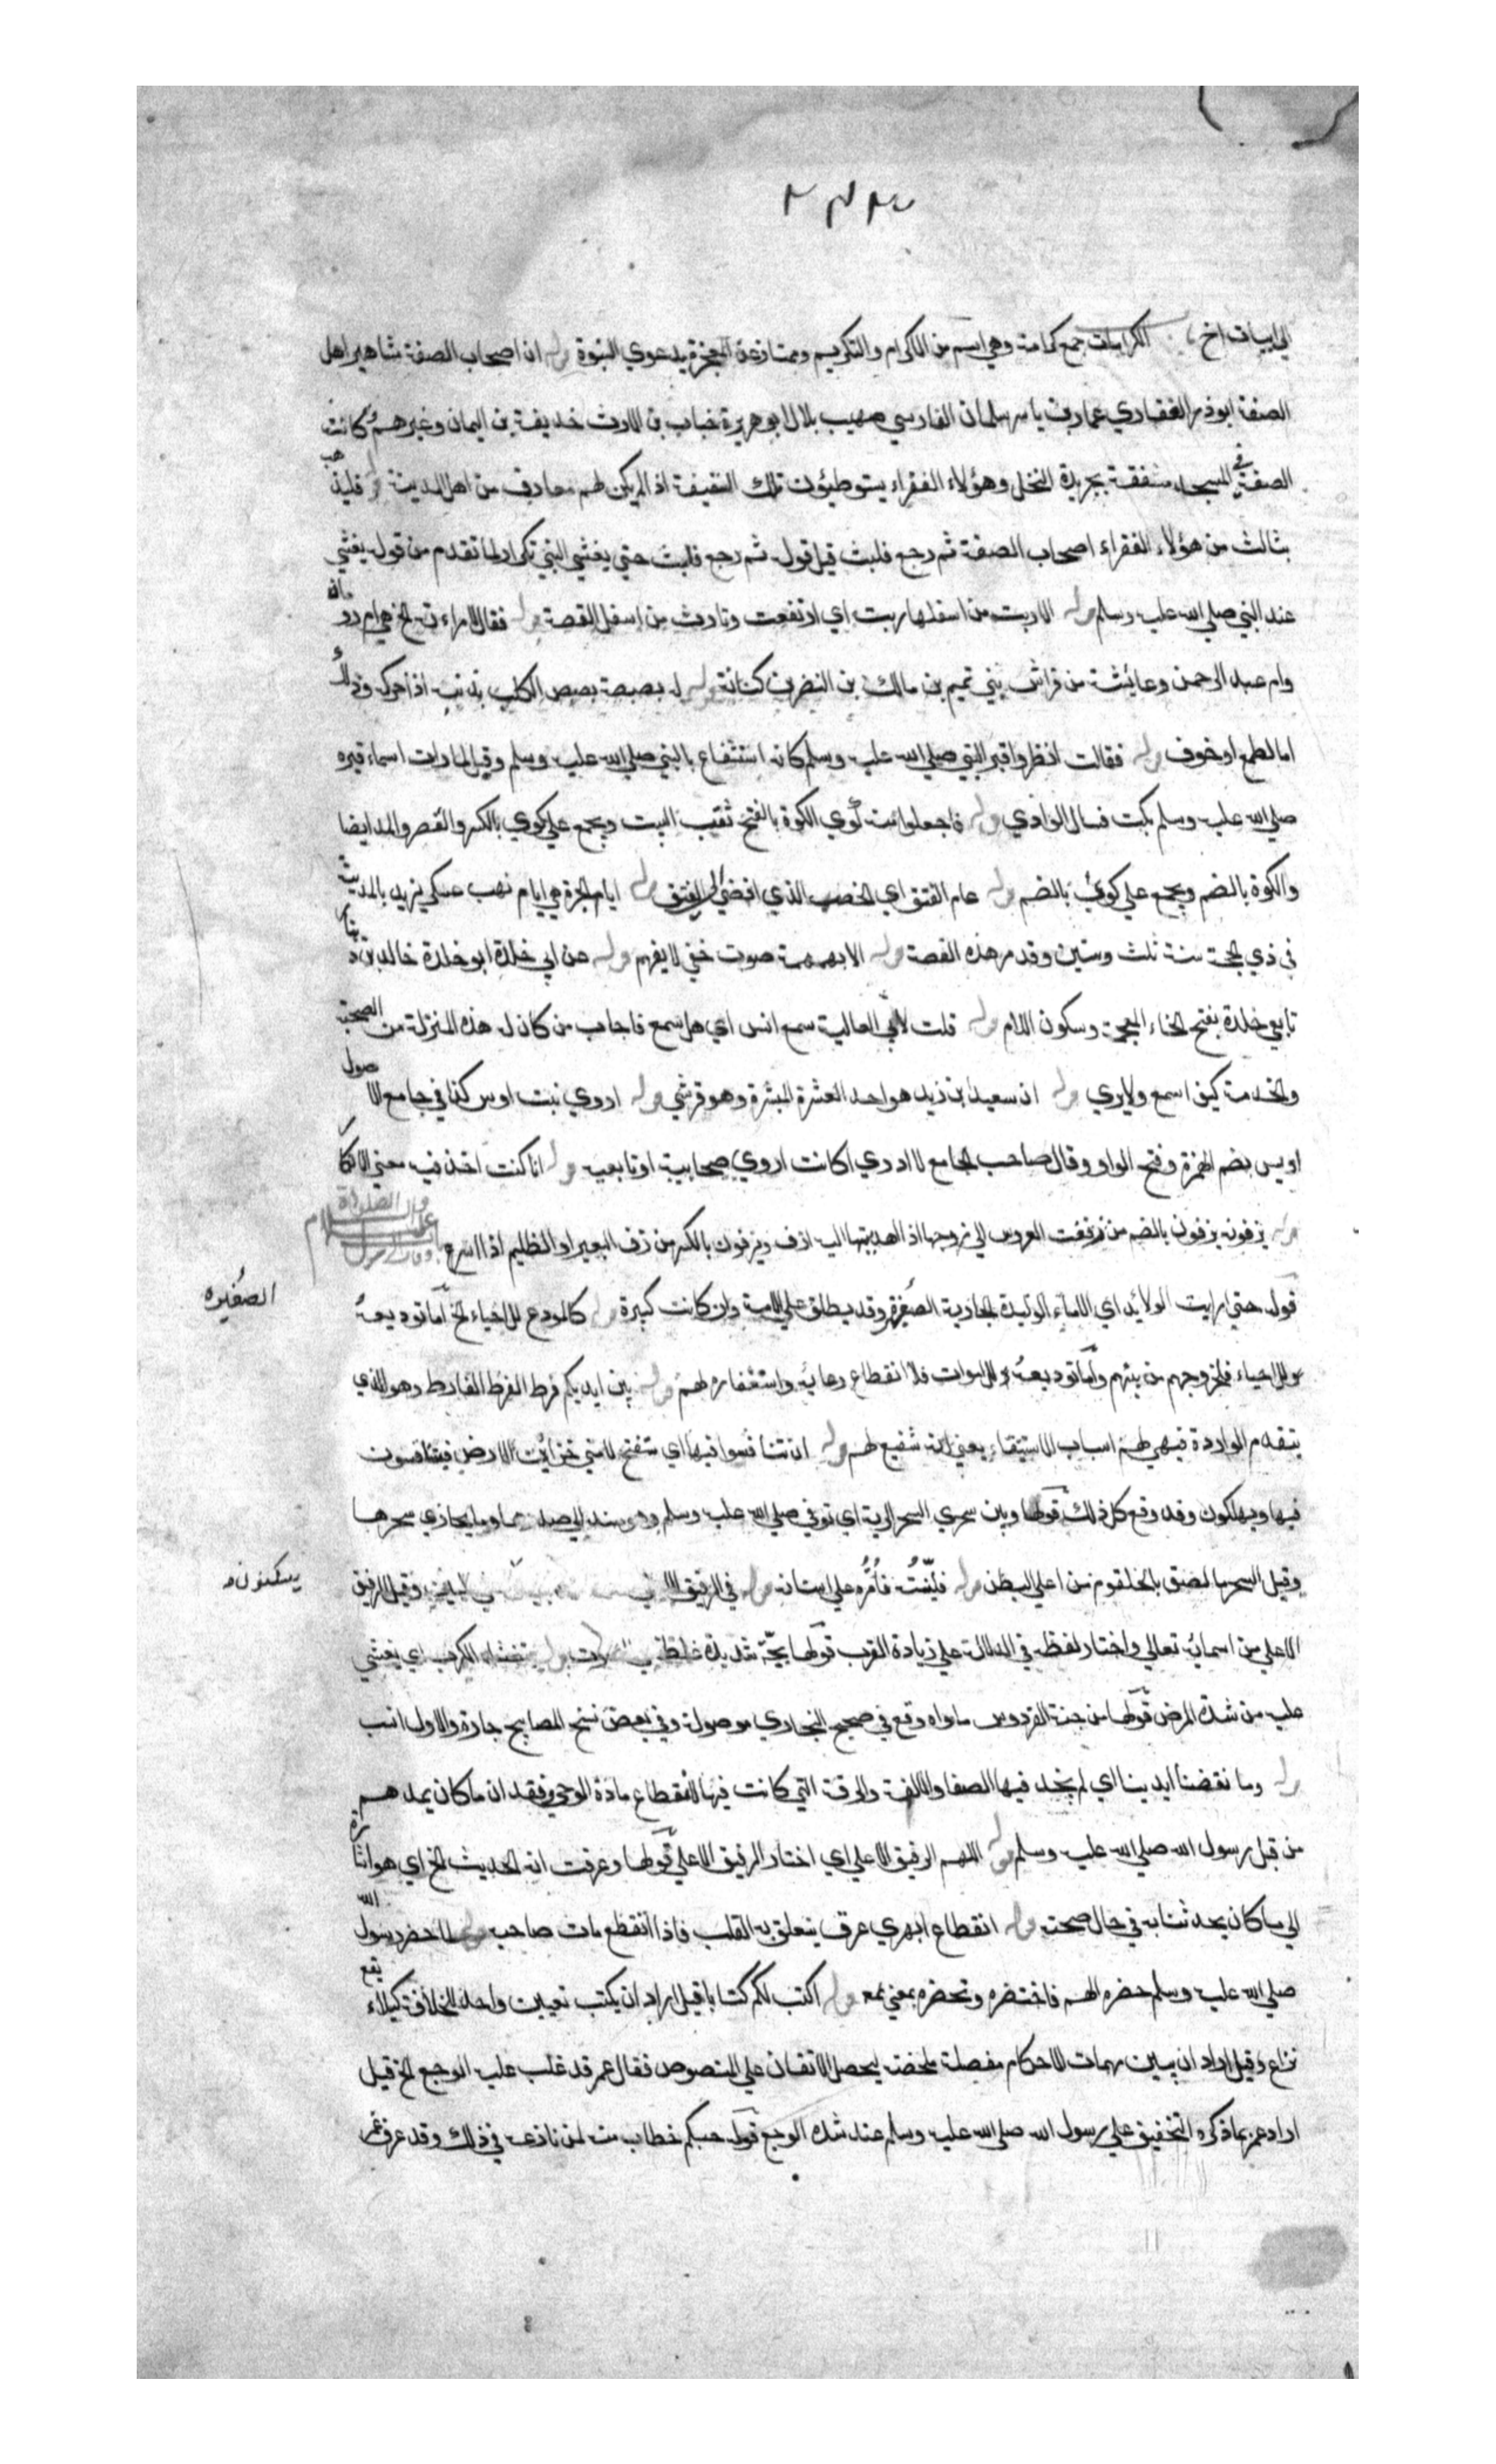 الى ابيات اخ الكرامات جمع كرامة وهي اسم من الاكرام والتكريم وممتازة عن المعجزة بدعوي النبوة قوله ان اصحاب الصفة مشاهير اهل
الصفة ابوذر الغفاري عمار بن ياسر سلمان الفارسي صهيب بلال ابو هريرة خباب بن الارت حذيفة بن اليمان وغيرهم كانت
الصفة في المسجد مسقفة بجريدة النخل وهؤلاء الفقراء يستوطئون تلك السقيفة اذ لم يكن لهم معارف من اهل المدينة فليذهب
بثالث من هؤلاء الفقراء اصحاب الصفة ثم رجع فلبث قيل قوله ثم رجع فلبث حتي يغشي النبي تكرار لما تقدم من قوله يغشي
عند النبي صلي الله عليه وسلم قوله الا ربت من اسفلها ربت اي ارتفعت وزادت من اسفل القصة قوله فقال لامراته الخ هي ام رومان
وام عبد الرحمن وعائشة من فراس بني تميم بن مالك بن النضر بن كنانة قوله له بصبصة بصبص الكلب بذنبه اذا حركه وذلك
اما لطمع او خوف قوله فقالت انظروا قبر النبي صلي الله عليه وسلم كانه استشفاع بالنبي صلي الله عليه وسلم وقيل لما رات السماء قبره
صلي الله عليه وسلم بكت فسال الوادي قوله فاجعلوا منه كوي الكوة بالفتح ثقب البيت ويجمع علي كوي بالكسر والقصر والمد ايضا
والكوة بالضم ويجمع علي كوي بالضم قوله عام الفتق اي الخصب الذي افضي الي الفتق قوله ايام الحرة هي ايام نهب عسكر يزيد بالمدينة
في ذي الحجة سنة ثلث وستين وقد مر هذه القصة قوله الا بهمهمة صوت خفي لا يفهم قوله عن ابي خلدة ابو خلدة خالد بن دينار
تابعي خلدة بفتح الخاء المعجمة وسكون اللام قوله قلت لابي العالية سمع انس اي هل سمع فاجاب من كان له هذه المنزلة من الصحبة
والخدمة كيف اسمع ولا يروي قوله ان سعيد ابن زيد هو احد العشرة المبشرة وهو قرشي قوله اروي بنت اوس كذا في جامع الاصول
اويس بضم الهمزة وفتح الواو وقال صاحب الجامع لا ادري اكانت اروي صحابية او تابعية قوله انا كنت اخذ فيه معني الانكار
قوله يزفونه يزفون بالضم من زففت العروس الي زوجها اذ اهديتها اليه ازف ويزفون بالكسر من زف البعير او الظليم اذا اسرع
قوله حتي رايت الولائد اي الاماء الوليدة الجارية الصغيرة وقد يطلق علي الامة وان كانت كبيرة قوله كالمودع للاحياء الخ اما توديعه
الصغيره
للاحياء فلخروجهم من بينهم واما توديعه للاموات فلانقطاع دعائه واستغفاره لهم قوله بين ايديكم فرط الفرط الفارط وهو الذي
يتقدم الواردة فيهيئ لهم اسباب الاستقاء يعني انه شفيع لهم قوله ان تنافسوا فيها اي ستفتح لامتي خزائن الارض فيتنافسون
فيها ويهلكون وقد وقع كل ذلك قولها وبين سحري السحر الرية اي توفي صلي الله عليه وسلم وهو مستند الي صدرها وما يحاذي سحرها
وقيل السحر ما لصق بالحلقوم من اعلي البطن قوله فلينته فامره علي اسنانه قوله في الرفيق وقيل الرفيق
يسكنون
الاعلي من اسمائه تعالي واختار لفظه في الدلالة علي زيادة القرب قولها بحة شديدة قوله يتغشاه الكرب اي يغشي
عليه من شدة المرض قولها من جنة الفردوس ماواه وقع في صحيح البخاري موصولة وفي بعض نسخ المصابيح جارة والاول انسب
قوله وما نفضنا ايدينا اي لم نجد فيها الصفا والالفة والرقة التي كانت فيها لانقطاع مادة الوحي وفقدان ما كان يمدهم
من قبل رسول الله صلي الله عليه وسلم قوله اللهم الرفيق الاعلي اي اختار الرفيق الاعلي قولها وعرفت انه الحديث الخ اي هو اشارة
الي ما كان يحدثنا به في حال صحته قوله انقطاع ابهري عرق يتعلق به القلب فاذا انقطع مات صاحبه قوله لما حضر رسول الله
صلي الله عليه وسلم حضره الهم فاحتضره وتحضره بمعني قوله اكتب لكم كتابا قيل اراد ان يكتب تعيين واحد للخلافة كيلا يقع
نزاع وقيل اراد ان يبين مهمات الاحكام مفصلة ملخصة ليحصل الاتفاق علي المنصوص فقال عمر قد غلب عليه الوجع الخ قيل
اراد عمر بما ذكره التخفيف علي رسول الله صلي الله عليه وسلم عند شدة الوجع قوله حسبكم خطاب منه لمن نازعه في ذلك وقد عرف عمر